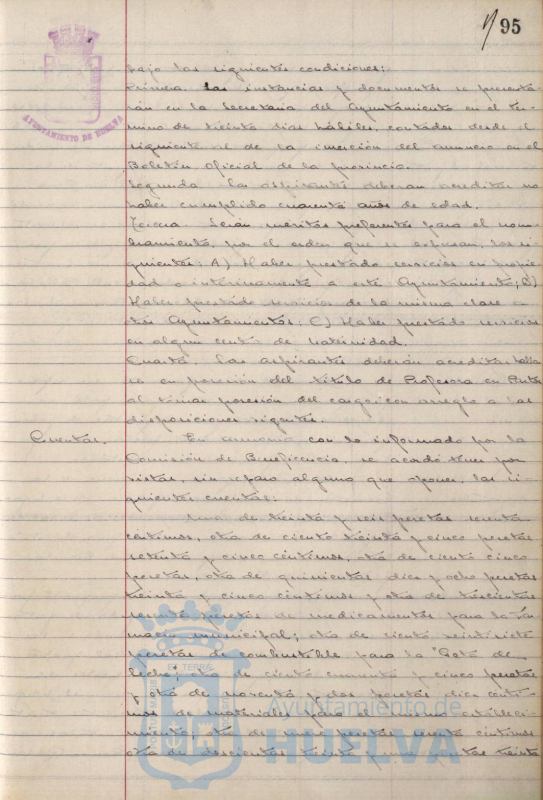 95
AYUNTAMIENTO DE HUELVA
bajo las siguientes condiciones:
Primera. Las instancias y documentos se presenta-
rán en la Secretaria del Ayuntamiento en el tér-
mino de treinta dias hábiles, contados desde el
siguiente al de la inserción del anuncio en el
Boletín Oficial de la provincia.
Segunda Las aspirantes deberan acreditar no
haber cumplido cuarenta años de edad.
Tercera. Serán méritos preferentes para el nom-
bramiento, por el orden que se expresan, los si-
guientes: A) Haber prestado servicios en propie-
dad o interinamente a este Ayuntamiento; B)
Haber prestado servicios de la misma clase a
otros Ayuntamientos; C) Haber prestado servicios
en algun centro de maternidad.
Cuarta Las aspirantes deberán acreditar hallar
se en posesión del titulo de Profesora en Partos
al tomar posesión del cargo, con arreglo a las
disposiciones vigentes.
Cuentas.
En armonia con lo informado por la
Comisión de Beneficencia, se acordó tener por
vistas, sin reparo alguno que oponer, las si-
guientes cuentas:
Una de treinta y seis pesetas sesenta
céntimos, otra de ciento treinta y cinco pesetas
setenta y cinco céntimos, otra de ciento cinco
pesetas, otra de quinientas diez y ocho pesetas
treinta y cinco céntimos y otra de trescientas
sesenta pesetas de medicamentos para la Far-
macia municipal; otra de ciento veintisiete
pesetas de combustible para la "Gota de
Leche; otra de ciento cuarenta y cinco pesetas
y otra de noventa y dos pesetas diez cénti-
mos de materiales para el mismo estableci-
miento; otra de pesetas sesenta céntimos
otra de doscientas treinta y pesetas treinta
Ayuntamiento de
HUELVA